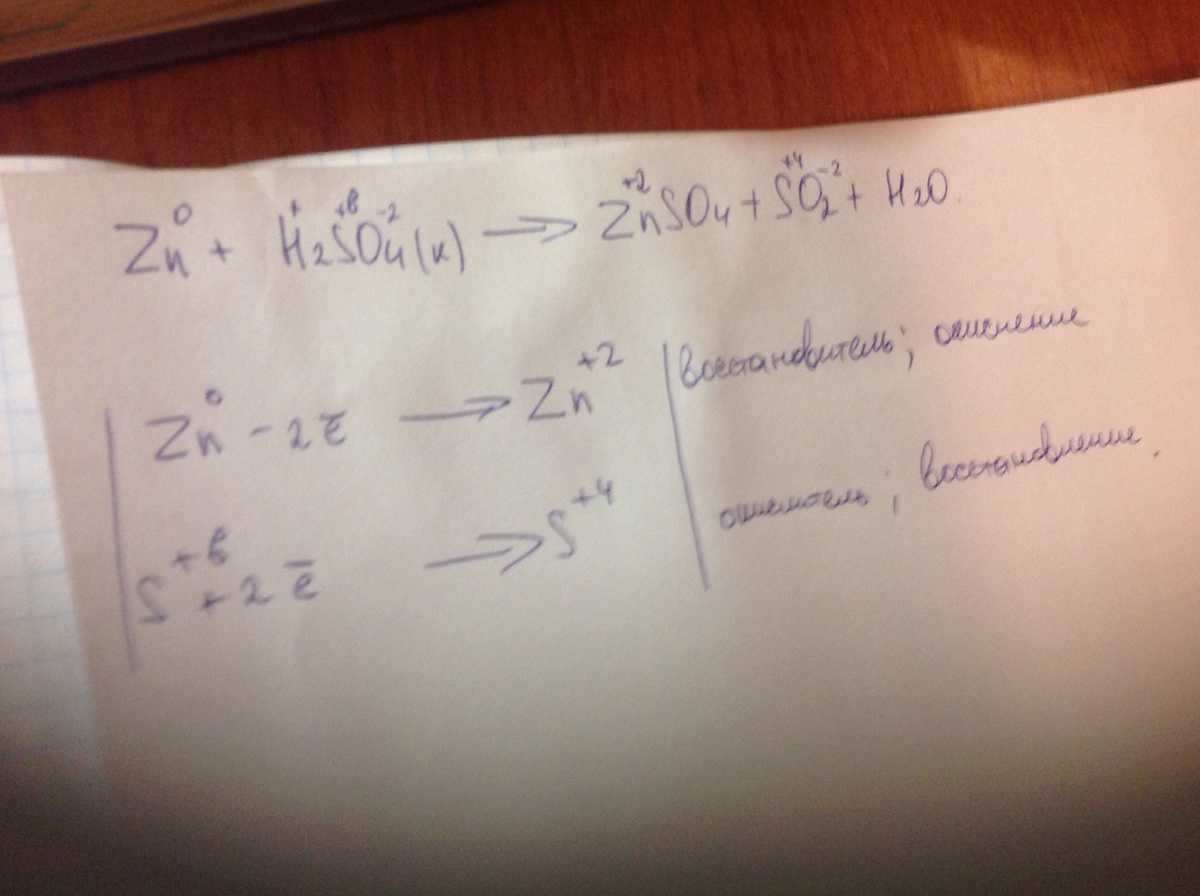 Zn⁰ + H₂⁺S⁺⁶O₄⁻²(к) → Zn⁺²SO₄ + S⁺⁴O₂⁻² + H₂O.
Zn⁰ - 2ē → Zn⁺² | восстановитель; окисление
S⁺⁶ + 2ē → S⁺⁴ | окислитель; восстановление.